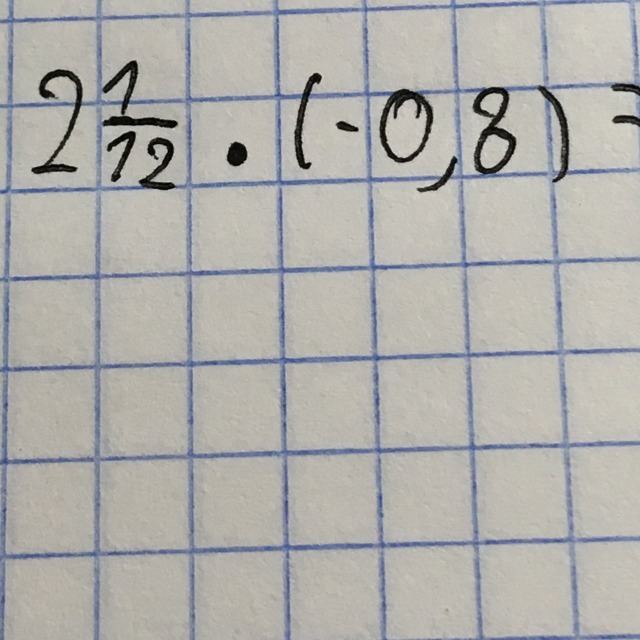 2 1/12 · (-0,8) =